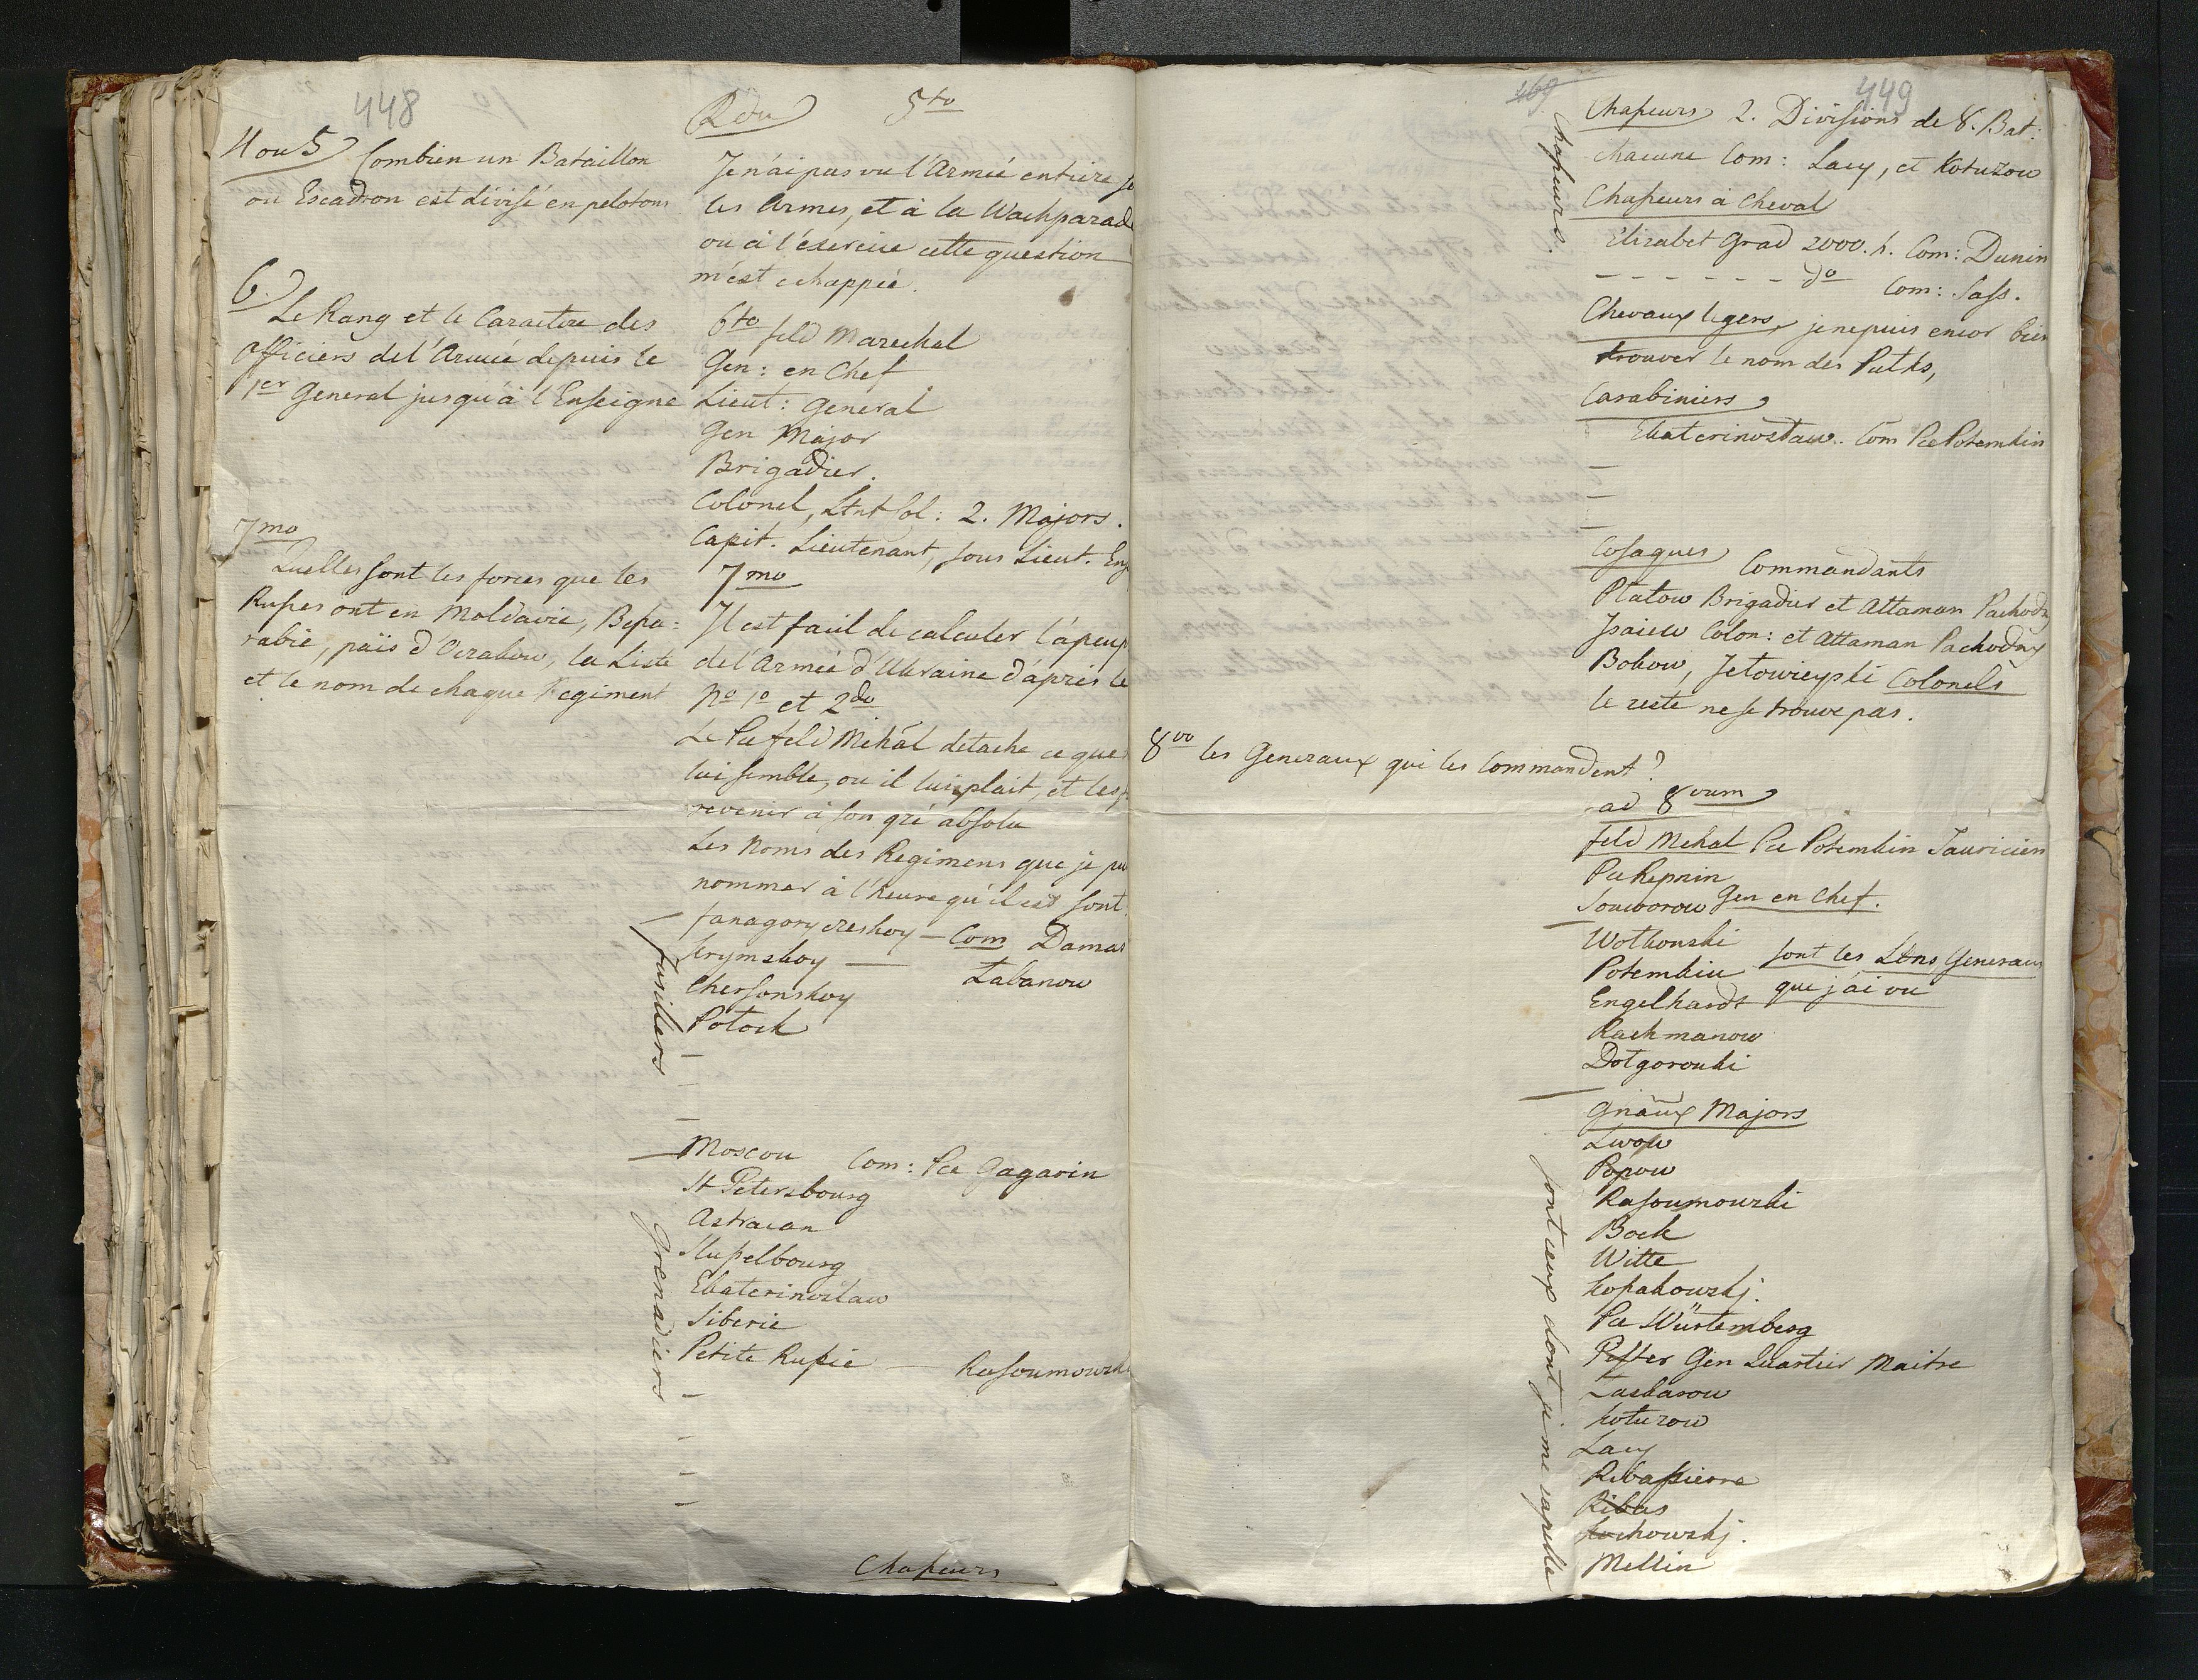 448
4 ou 5 Combien un Bataillon
ou Escadron est divisé en pelotons
6.
Le Rang et le Caractere des
Officiers de l'Armée depuis le
1er General jusqu'à l'Enseigne
7mo
Quelles sont les forces que les
Russes ont en Moldavie, Bessa:
rabie, païs d'Oczakow, la Liste
et le nom de chaque Regiment
5to
Je n'ai pas vu l'Armée entiere
les Armes, et à la Wachparade
ou à l'exercice cette question
m'est echappée.
6to feld Marechal
Gen: en Chef
Lieut: General
Gen Major
Brigadier.
Colonel, Ltnt Col: 2. Majors.
Capit. Lieutenant, sous Lieut.
7mo
Il est facil de calculer l'apeup
de l'Armée d'Ukraine d'après le
No 1o et 2do
Le Pce feld Mchal detache ce que
lui semble, ou il lui plait, et les
revenir à son gré absolu
Les Noms des Regimens que je pu
nommer à l'heure qu'il est sont
fusiliers
fanagoryczeskoy — Com Damas
krymskoy —— Labanow
Chersonskoy
Potock
Grenadiers
Moscou Com: Pce Gagarin
St Petersbourg
Astracan
Slusselbourg
Ekaterinoslaw
Siberie
Petite Russie — Rasoumowsk
Chasseurs
469
449
Chasseurs.
Chasseurs 2. Divisions de 8. Bat:
chacune Com: Lacy, et Kotuzow
Chasseurs à Cheval
Elizabet Grad 2000. h. Com: Dunin
- - - - - - do Com: Sass.
Chevaux legers, je ne puis encor bien
trouver le nom des Pulks,
Carabiniers
Ekaterinoslaw. Com Pce Potemkin
Cosaques Commandants
Platow Brigadier et Attaman Pachodn
Isaiew Colon: et Attaman Pachodny
Bokow, Jetowieyski Colonels
le reste ne se trouve pas.
8vo les Generaux qui les Commandent?
ad 8vum
feld Mchal Pce Potemkin Tauricien
Pce Repnin
Souworow Gen en Chef.
Wolkonski
Potemkin sont les Ltns Generaux
Engelhardt que j'ai vu
Rachmanow
Dolgorouki
sont ceux dont je me rapelle
Gnaux Majors
Lwow
Popow
Rasoumowski
Bock
Witte
Kossakowskj.
Pce Würtemberg
Pistor Gen Quartier Maitre
Laskarow
Kotuzow
Lacy
Ribaspierre
Ribas
Kochowskj.
Mellin